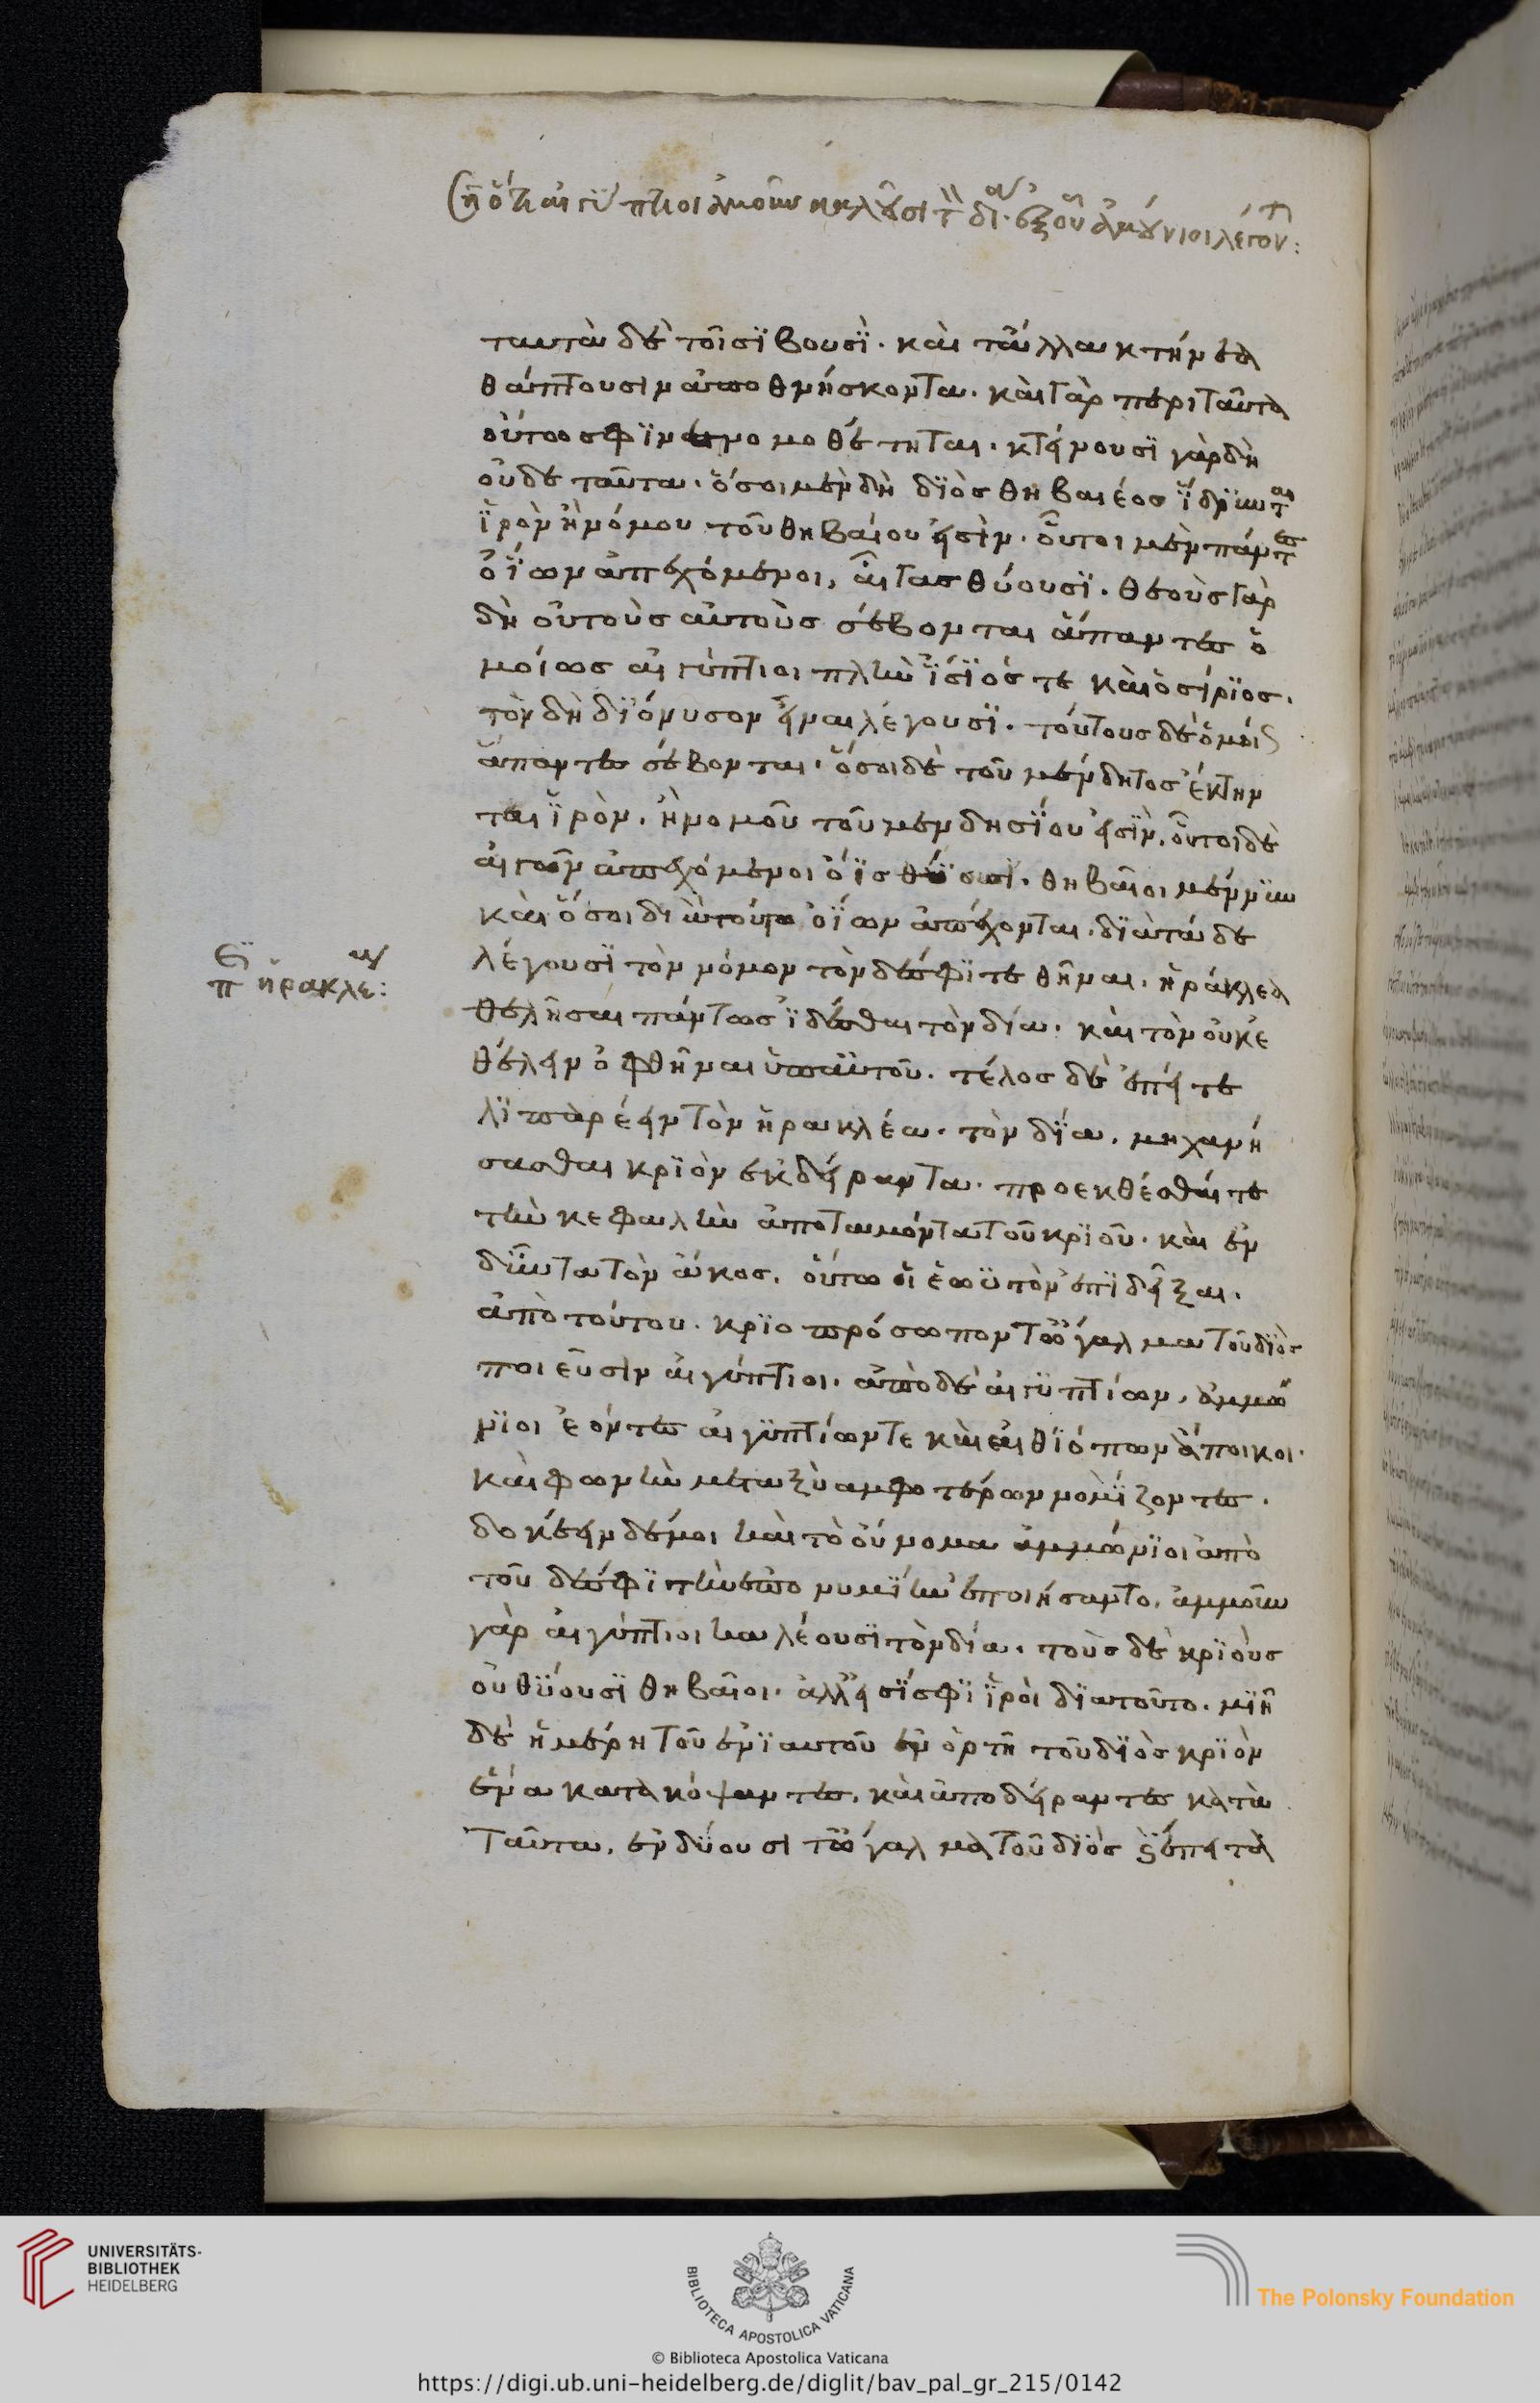 ταυτὰ δὲ τοῖσι βουσὶ· καὶ τἄλλα κτήνεα
θάπτουσιν ἀποθνήσκοντα. καὶ γὰρ περὶ ταῦτα
οὕτω σφιν νενομοθέτηται. κτείνουσι γὰρ δὴ
οὐδὲ ταῦτα. ὅσοι μὲν δὴ διὸς θηβαιέος ἵδρυνται
ἱρὸν ἢ νόμου τοῦ θηβαίου εἰσὶν. οὗτοι μὲν πάντες
ὀΐων ἀπεχόμενοι, αἶγας θύουσι. θεοὺς γὰρ
δὴ οὐ τοὺς αὐτοὺς σέβονται ἅπαντες ὁ
μοίως αἰγύπτιοι πλὴν ἴσιός τε καὶ ὀσίριος.
τὸν δὴ διόνυσον εἶναι λέγουσι. τούτους δὲ ὁμοίως
ἅπαντες σέβονται. ὅσοι δὲ τοῦ μένδητος ἔκτην
ται ἱρὸν. ἢ νομοῦ τοῦ μενδησίου εἰσὶν. οὗτοι δὲ
αἰγῶν ἀπεχόμενοι ὄϊς θύουσι. θηβαῖοι μέν νυν
καὶ ὅσοι διὰ τούτο ὀΐων ἀπέχονται. διὰ τάδε
λέγουσι τὸν νόμον τὸν δέ σφι τεθῆναι. ἡράκλεα
θελῆσαι πάντως ἰδέσθαι τὸν δία. καὶ τὸν οὐκ ἐ
θέλειν ὀφθῆναι ὑπ' αὐτοῦ. τέλος δὲ ἐπεί τε
λιπαρέειν τὸν ἡρακλέα. τὸν δία. μηχανή
σασθαι κριὸν ἐκδείραντα. προεκθέσθαι τε
τὴν κεφαλὴν ἀποταμόντα τοῦ κριοῦ. καὶ ἐν
δύντα τὸν ἄκος. οὕτω οἱ ἑωϋτὸν ἐπιδεῖξαι.
ἀπὸ τούτου. κριοπρόσωπον τὤγαλμα τοῦ διὸς
ποιεῦσιν αἰγύπτιοι. ἀπὸ δὲ αἰγυπτίων, ἀμμώ
νιοι ἐόντες αἰγυπτίων τε καὶ αἰθιόπων ἄποικοι.
καὶ φωνὴν μεταξὺ ἀμφοτέρων νομίζοντες.
δοκέειν δέ μοι καὶ τὸ οὔνομα ἀμμώνιοι ἀπὸ
τοῦ δέ σφι τὴν ἐπωνυμίην ἐποιήσαντο. ἀμμοῦν
γὰρ αἰγύπτιοι καλέουσι τὸν δία. τοὺς δὲ κριοὺς
οὐ θύουσι θηβαῖοι. ἀλλ' εἰσί σφι ἱροὶ διὰ τοῦτο. μιῆ
δὲ ἡμέρη τοῦ ἐνιαυτοῦ ἐν ὁρτῆ τοῦ διὸς κριὸν
ἕνα κατακόψαντες. καὶ ἀποδείραντες κατὰ
ταῦτα. ἐνδύουσι τὤγαλμα τοῦ διὸς καὶ ἔπειτα
περὶ ἡρακλέους:
© Biblioteca Apostolica Vaticana
UNIVERSITÄTS-
BIBLIOTHEK
HEIDELBERG
BIBLIOTECA APOSTOLICA VATICANA
The Polonsky Foundation
https://digi.ub.uni-heidelberg.de/diglit/bav_pal_gr_215/0142